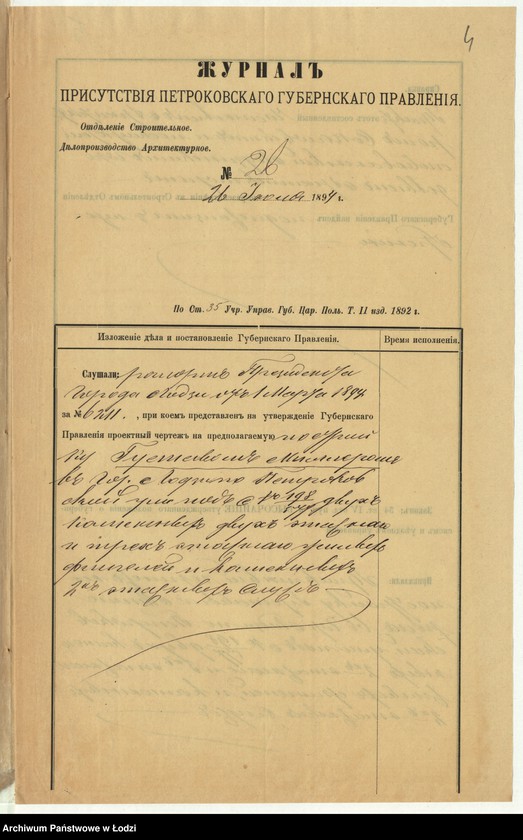 4
ЖУРНАЛЪ
ПРИСУТСТВІЯ ПЕТРОКОВСКАГО ГУБЕРНСКАГО ПРАВЛЕНІЯ.
Отдѣленіе Строительное.
Дѣлопроизводство Архитектурное.
№ 26
26 1894 г.
По Ст. 35 Учр. Управ. Губ. Цар. Поль. Т. II изд. 1892 г.
Изложеніе дѣла и постановленіе Губернскаго Правленія.
Время исполненія.
Слушали: рапортъ Президента
Города Лодзи отъ 1 Марта 1894
за № 6211, при коемъ представленъ на утвержденіе Губернскаго
Правленія проектный чертежъ на предполагаемую постройку
Густавомъ Миллеромъ
въ гор. Лодзи по Петроков
ской улицѣ подъ № двухъ
каменныхъ двухъ этажныхъ
и трехъ этажнаго
флигелей и каменныхъ
2хъ этажныхъ службъ
Archiwum Państwowe w Łodzi